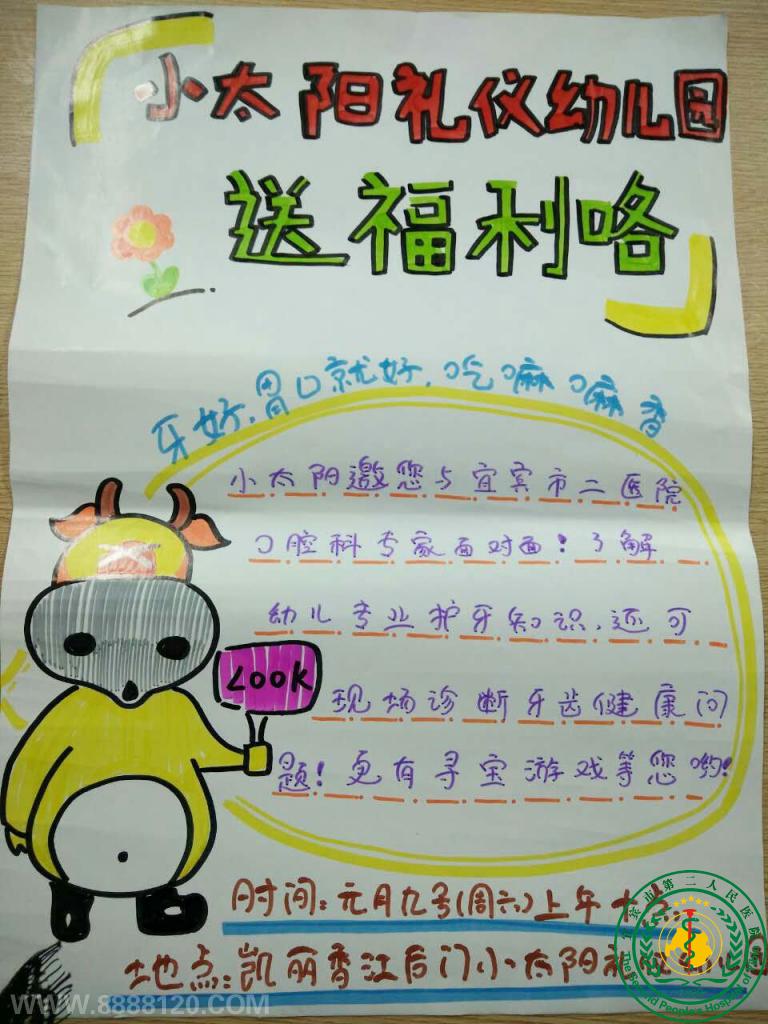 小太阳礼仪幼儿园
送福利咯
牙好,胃口就好,吃嘛嘛香
小太阳邀您与宜宾市二医院
口腔科专家面对面!了解
幼儿专业护牙知识,还可
现场诊断牙齿健康问
题!更有寻宝游戏等您哟!
LOOK
时间:元月九号(周六)上午十点
地点:凯丽香江后门小太阳礼仪幼儿园
宜宾市第二人民医院
The Second People's Hospital of
WWW.8888120.COM